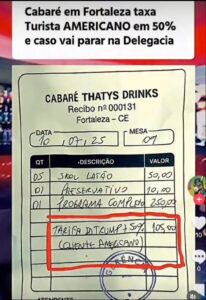 Cabaré em Fortaleza taxa
Turista AMERICANO em 50%
e caso vai parar na Delegacia
CABARÉ THATYS DRINKS
Recibo nº 000131
Fortaleza – CE
DATA
MESA
10,07,25
09
QT
DESCRIÇÃO
VALOR
05 SKOL LATÃO 50,00
01 PRESERVATIVO 10,00
01 PROGRAMA COMPLETO 250,00
TARIFA D.TRUMP 50% 105,00
(CLIENTE AMERICANO)
GERÊNCIA
ATENDENTE